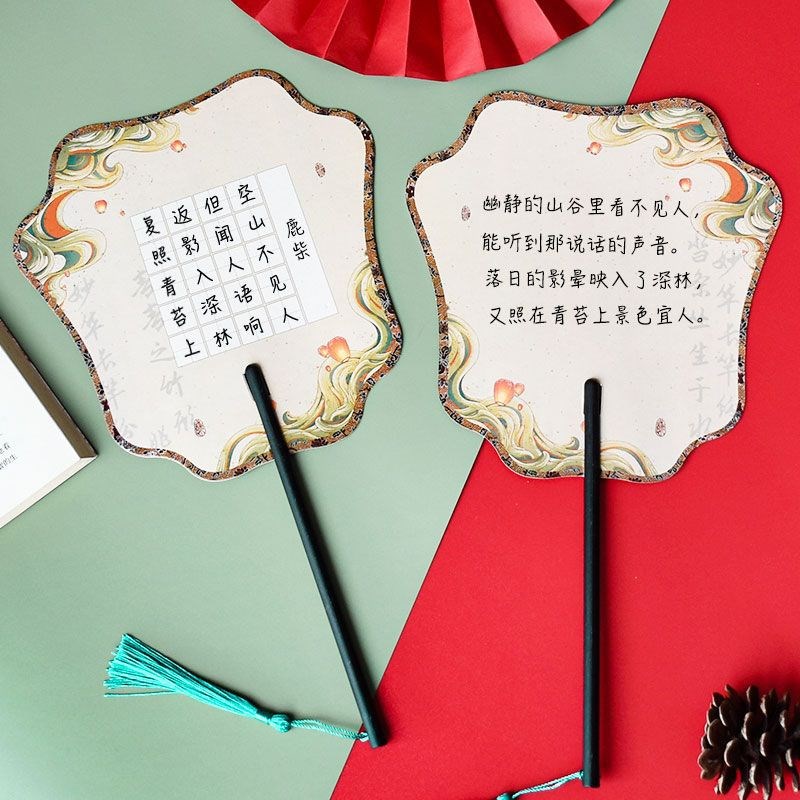 鹿柴
空山不见人
但闻人语响
返影入深林
复照青苔上
幽静的山谷里看不见人，
能听到那说话的声音。
落日的影晕映入了深林，
又照在青苔上景色宜人。